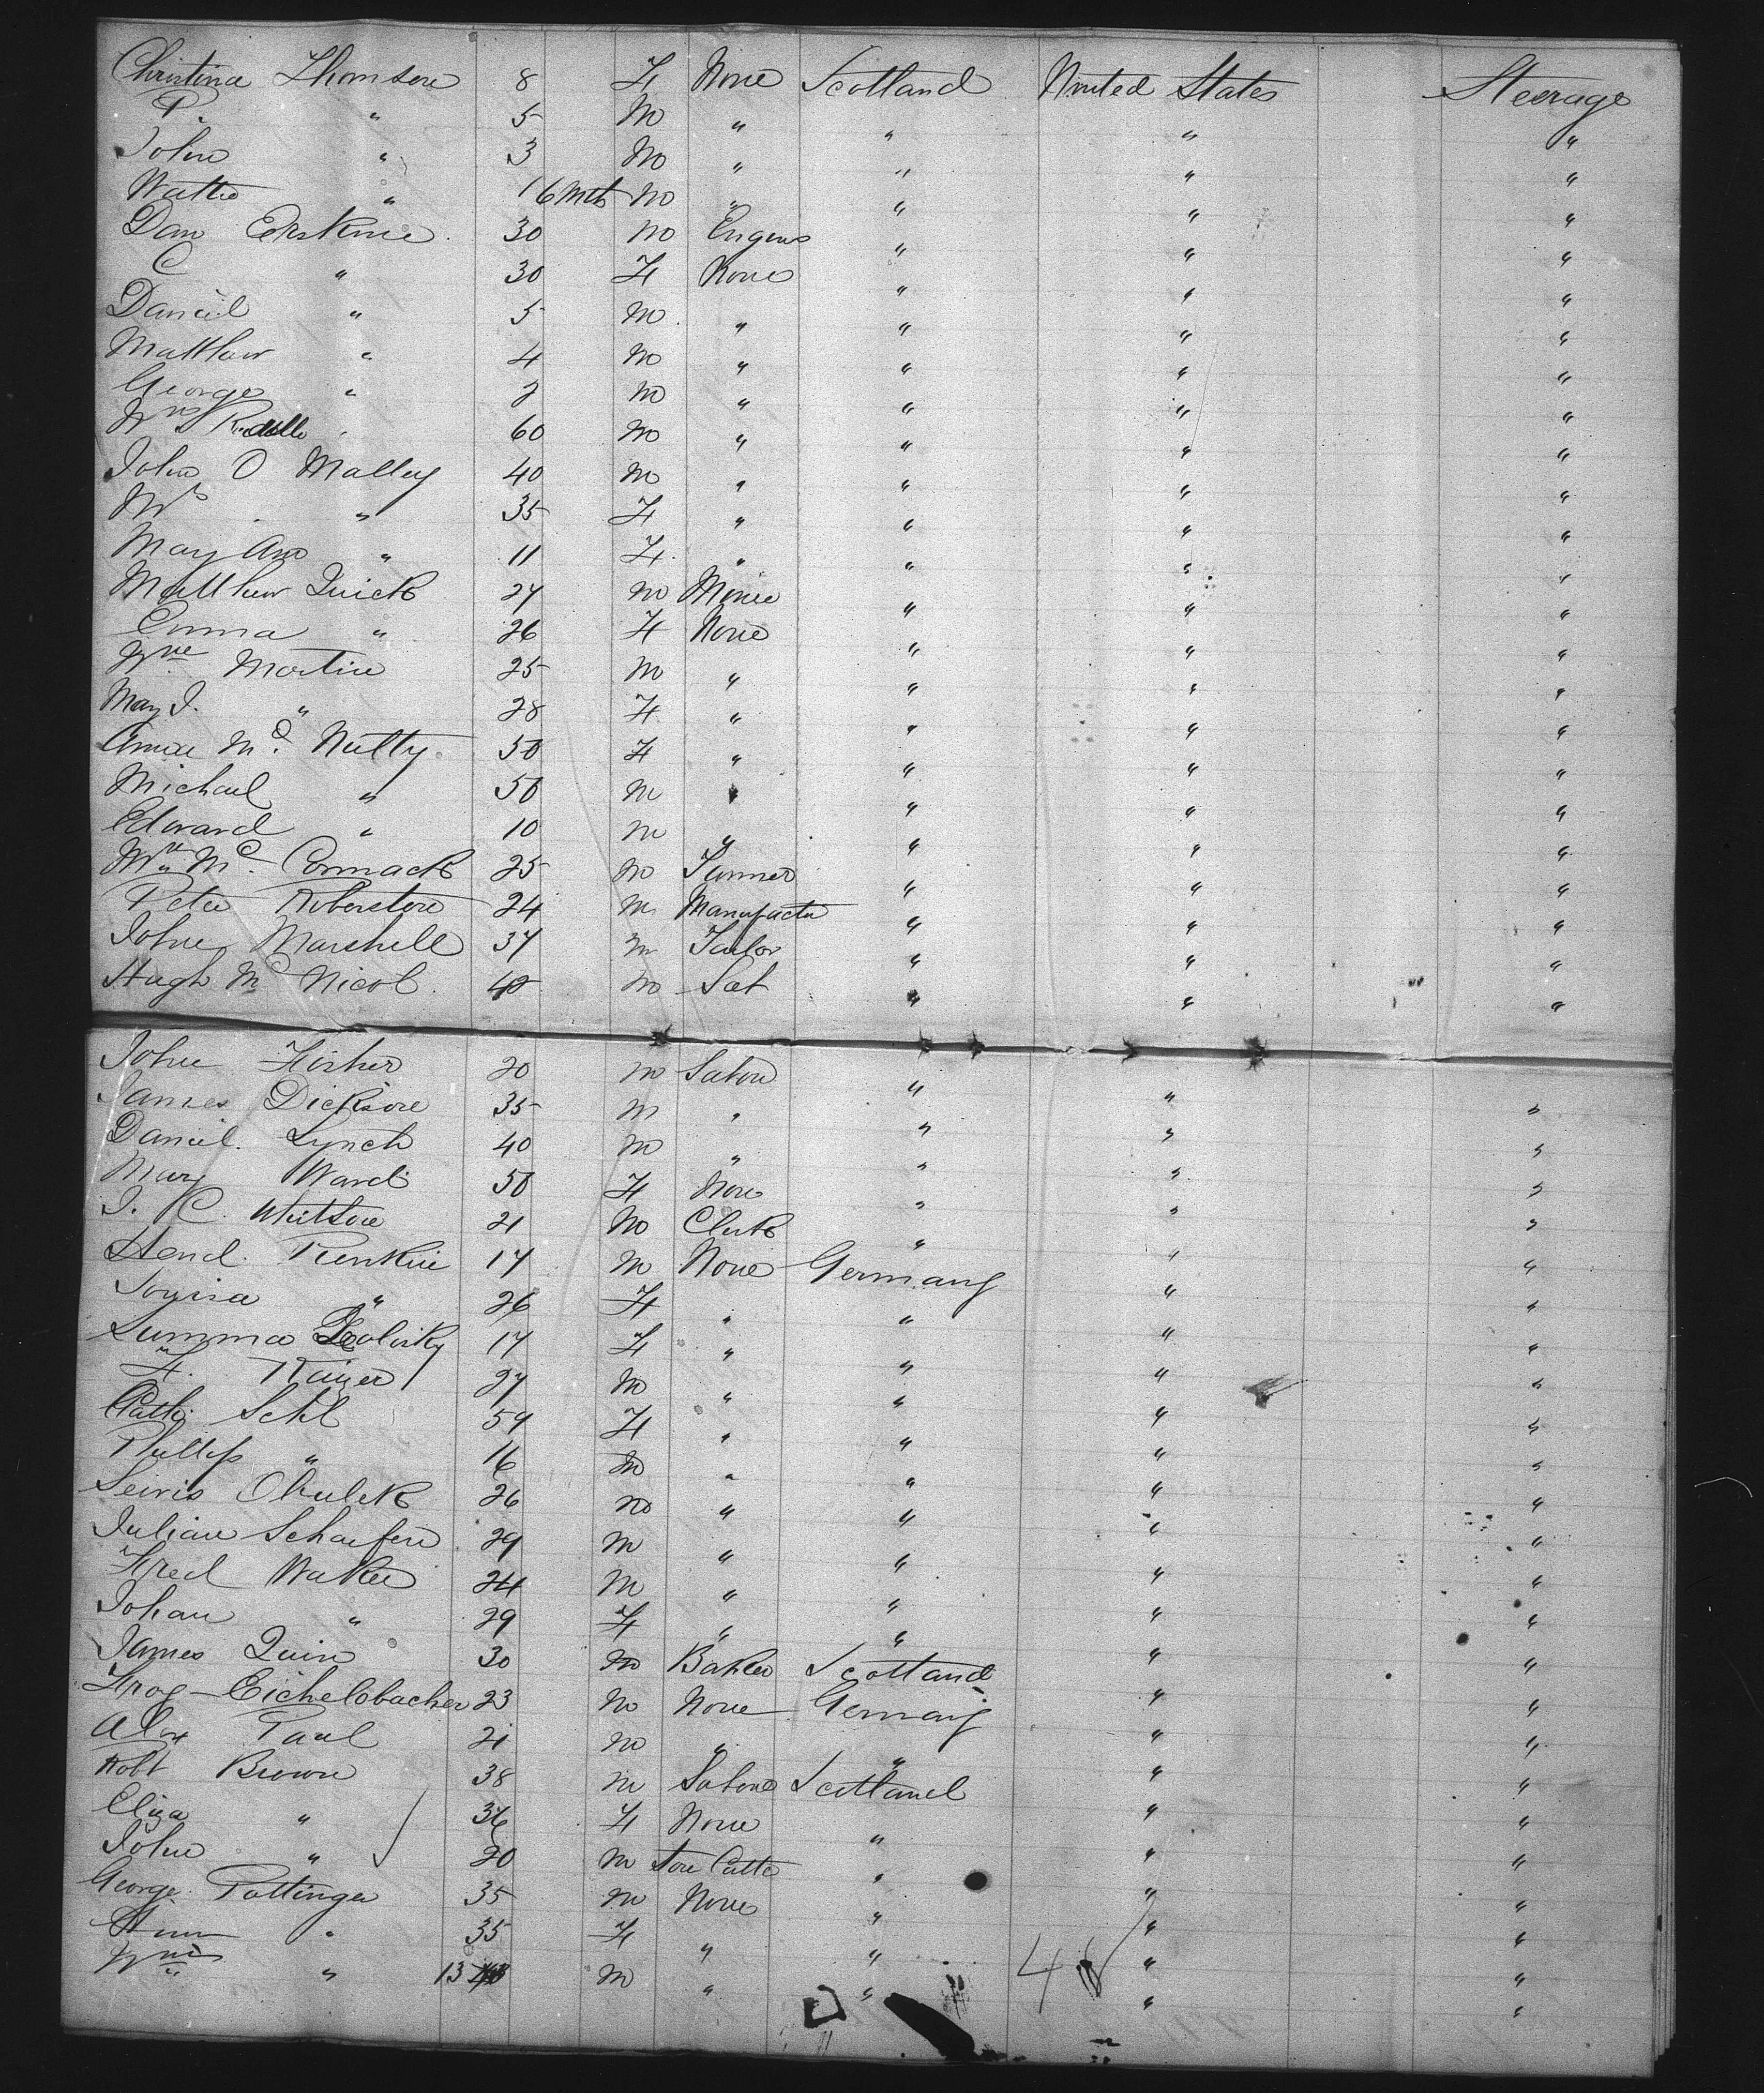 Christina Thomson 8 F None Scotland United States Steerage
P. " 5 M " " " "
John " 3 M " " " "
Walter " 1 6 Mth M " " " "
Dan Erskine 30 M Engine " " "
C " 30 F None " " "
Daniel " 5 M " " " "
Matthew " 4 M " " " "
George " 2 M " " " "
Wm 60 M " " " "
John O Malley 40 M " " " "
Mrs " 35 F " " " "
Mary Ann " 11 F " " " "
Matthew Quick 27 M Miner " " "
Emma " 26 F None " " "
Wm Martin 25 M " " " "
Mary J. " 28 F " " " "
Annie Mc Nulty 50 F " " " "
Michael " 50 M " " " "
Edward " 10 M " " " "
Wm Mc Cormack 25 M " " "
Peter Robertson 24 M Manufactu " " "
John Marshall 37 M Tailor " " "
Hugh Mc Nicol 40 M " " "
John Fisher 20 M " " "
James Dickson 35 M " " " "
Daniel Lynch 40 M " " " "
Mary Ward 50 F None " " "
J. C. Whitson 21 M Clerk " " "
Hend. 17 M None Germany " "
" 26 F " " " "
17 F " " " "
F. 27 M " " " "
Cath. Sehl 59 F " " " "
Phillip " 16 M " " " "
26 M " " " "
Julian 29 M " " " "
Fred 24 M " " " "
Johan " 29 F " " " "
James Quin 30 M Baker Scotland " "
Eichelsbacher 23 M None Germany " "
Alex Paul 21 M " " " "
Robt Brown 38 M Scotland " "
Eliza " 36 F None " " "
John " 20 M " " "
George Pottinger 35 M None " " "
" 35 F " " " "
Wm " 13 M " " " "
48